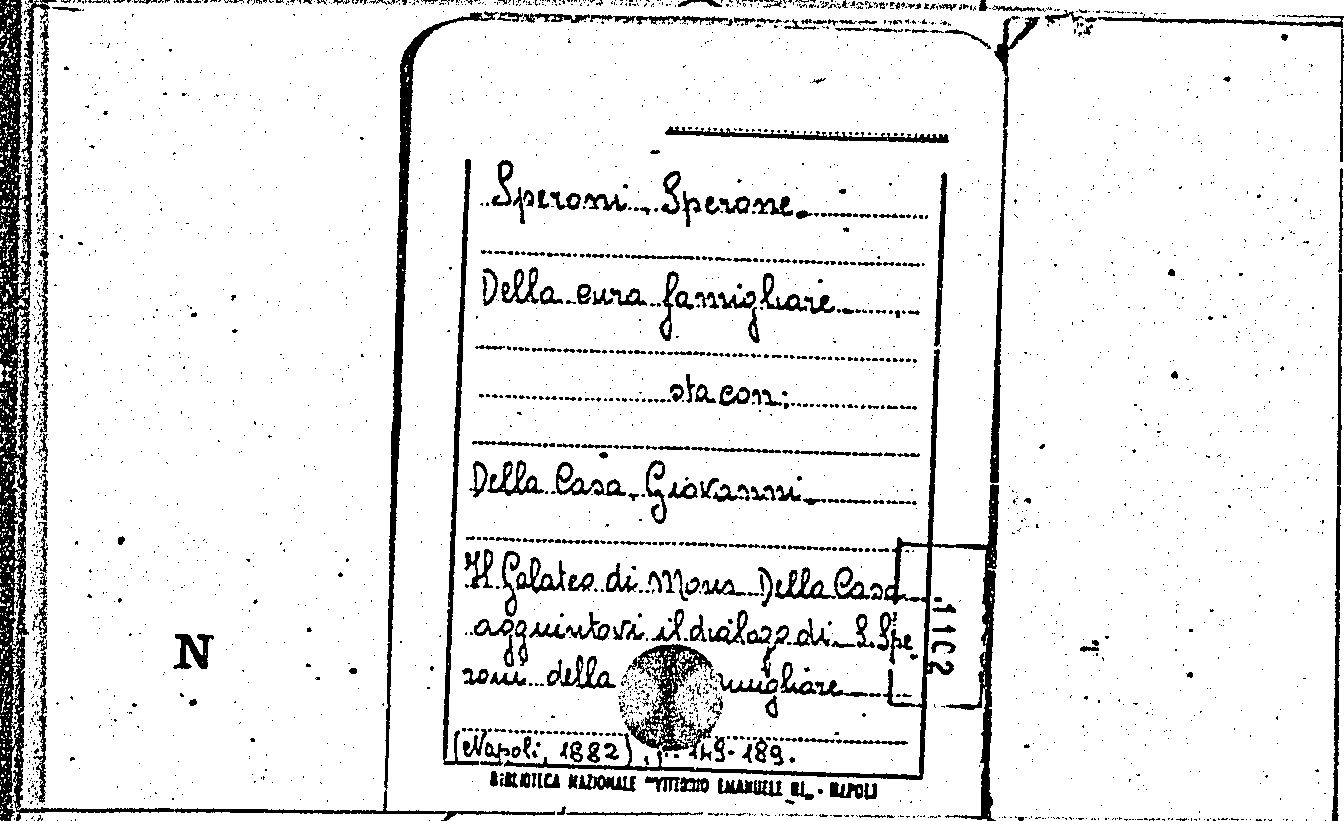 Speroni, Sperone.
Della cura famigliare.
sta con:
Della Casa, Giovanni.
Il Galateo di Mons Della Casa
aggiuntovi il dialogo di S. Spe
roni della migliare
(Napoli, 1882), p. 149-189.
BIBLIOTECA NAZIONALE "VITTORIO EMANUELE III" - NAPOLI
N
11C2